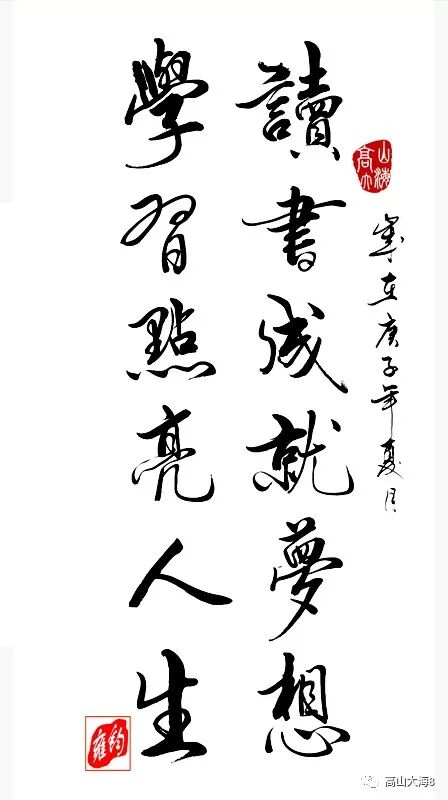 高山大海
寫在庚子年夏月
讀書成就夢想
學習點亮人生
高山大海8